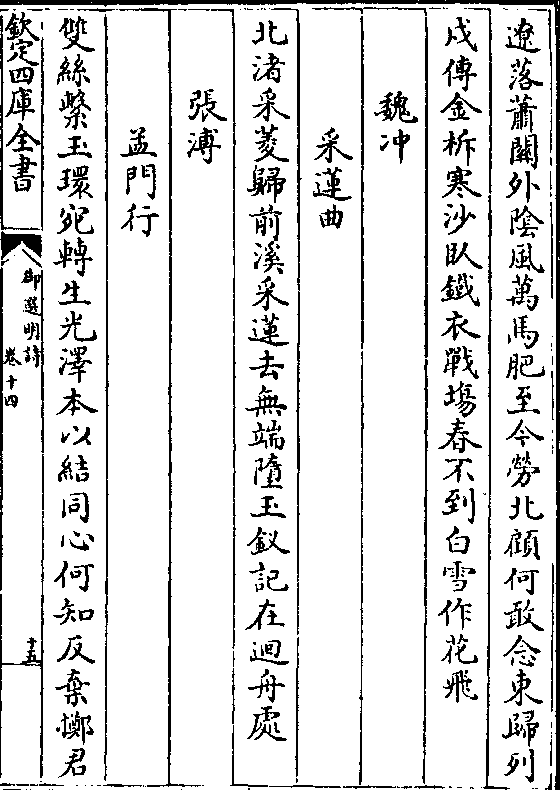 遼落蕭關外陰風萬馬肥至今勞北顧何敢念東歸列
戍傳金柝寒沙臥鐵衣戰塲春不到白雪作花飛
魏冲
采蓮曲
北渚采菱歸前溪采蓮去無端墮玉釵記在迴舟處
張溥
孟門行
雙絲繫玉環宛轉生光澤本以結同心何知反棄擲君
欽定四庫全書
御選明詩
卷十四
十五